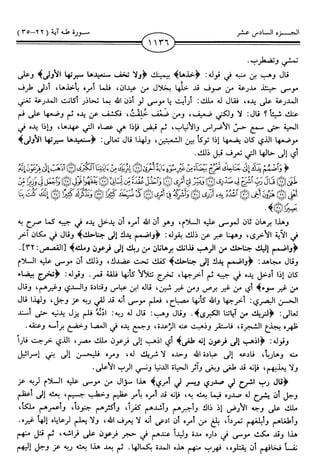 الجـــزء السادس عشر
١١٣٦
سـورة طـه آية (٢٢-٣٥)
تمشي وتضطرب.
قال وهب بن منبه في قوله: ﴿خذها﴾ بيمينك ﴿ولا تخف سنعيدها سيرتها الأولى﴾ وعلى
موسى حينئذ مدرعة من صوف قد خلّها بخلال من عيدان، فلما أمره بأخذها، أدلى طرف
المدرعة على يده، فقال له ملك: أرأيت يا موسى لو أذن الله بما تحاذر أكانت المدرعة تغني
عنك شيئاً؟ قال: لا ولكني ضعيف، ومن ضَعْف خُلِقْت، فكشف عن يده ثم وضعها على فم
الحية حتى سمع حسّ الأضراس والأنياب، ثم قبض فإذا هي عصاه التي عهدها، وإذا يده في
موضعها الذي كان يضعها إذا توكأ بين الشعبتين، ولهذا قال تعالى: ﴿سنعيدها سيرتها الأولى﴾
أي إلى حالها التي تعرف قبل ذلك.
﴿وَاضْمُمْ يَدَكَ إِلَىٰ جَنَاحِكَ تَخْرُجْ بَيْضَاءَ مِنْ غَيْرِ سُوءٍ آيَةً أُخْرَىٰ لِنُرِيَكَ مِنْ آيَاتِنَا الْكُبْرَى اذْهَبْ إِلَىٰ فِرْعَوْنَ إِنَّهُ
وهذا برهان ثان لموسى عليه السلام، وهو أن الله أمره أن يدخل يده في جيبه كما صرح به
في الآية الأخرى، وههنا عبر عن ذلك بقوله: ﴿واضمم يدك إلى جناحك﴾ وقال في مكان آخر
﴿واضمم إليك جناحك من الرهب فذانك برهانان من ربك إلى فرعون وملئه﴾ [القصص: ٣٢].
وقال مجاهد: ﴿واضمم يدك إلى جناحك﴾ كفك تحت عضدك، وذلك أن موسى عليه السلام
كان إذا أدخل يده في جيبه ثم أخرجها، تخرج تتلألأ كأنها فلقة قمر. وقوله: ﴿تخرج بيضاء
من غير سوء﴾ أي من غير برص ومن غير شين، قاله ابن عباس وقتادة والسدي وغيرهم، وقال
الحسن البصري: أخرجها والله كأنها مصباح، فعلم موسى أنه قد لقي ربه عز وجل، ولهذا قال
تعالى: ﴿لنريك من آياتنا الكبرى﴾. وقال وهب: قال له ربه: ادْنُهْ فلم يزل يدنيه حتى أسند
ظهره بجذع الشجرة، فاستقر وذهبت عنه الرعدة، وجمع يده في العصا وخضع برأسه وعنقه.
وقوله: ﴿اذهب إلى فرعون إنه طغى﴾ أي اذهب إلى فرعون ملك مصر، الذي خرجت فاراً
منه وهارباً، فادعه إلى عبادة الله وحده لا شريك له، ومره فليحسن إلى بني إسرائيل
ولا يعذبهم، فإنه قد طغى وبغى وآثر الحياة الدنيا ونسي الرب الأعلى.
﴿قال رب اشرح لي صدري ويسر لي أمري﴾ هذا سؤال من موسى عليه السلام لربه عز
وجل أن يشرح له صدره فيما بعثه به، فإنه قد أمره بأمر عظيم وخطب جسيم، بعثه إلى أعظم
ملك على وجه الأرض إذ ذاك وأجبرهم وأشدهم كفراً، وأكثرهم جنوداً، وأعمرهم ملكاً،
وأطغاهم وأبلغهم تمرداً، بلغ من أمره أن ادعى أنه لا يعرف الله، ولا يعلم لرعاياه إلهاً غيره.
هذا وقد مكث موسى في داره مدة وليداً عندهم في حجر فرعون على فراشه، ثم قتل منهم
نفساً فخافهم أن يقتلوه، فهرب منهم هذه المدة بكمالها. ثم بعد هذا بعثه ربه عز وجل إليهم